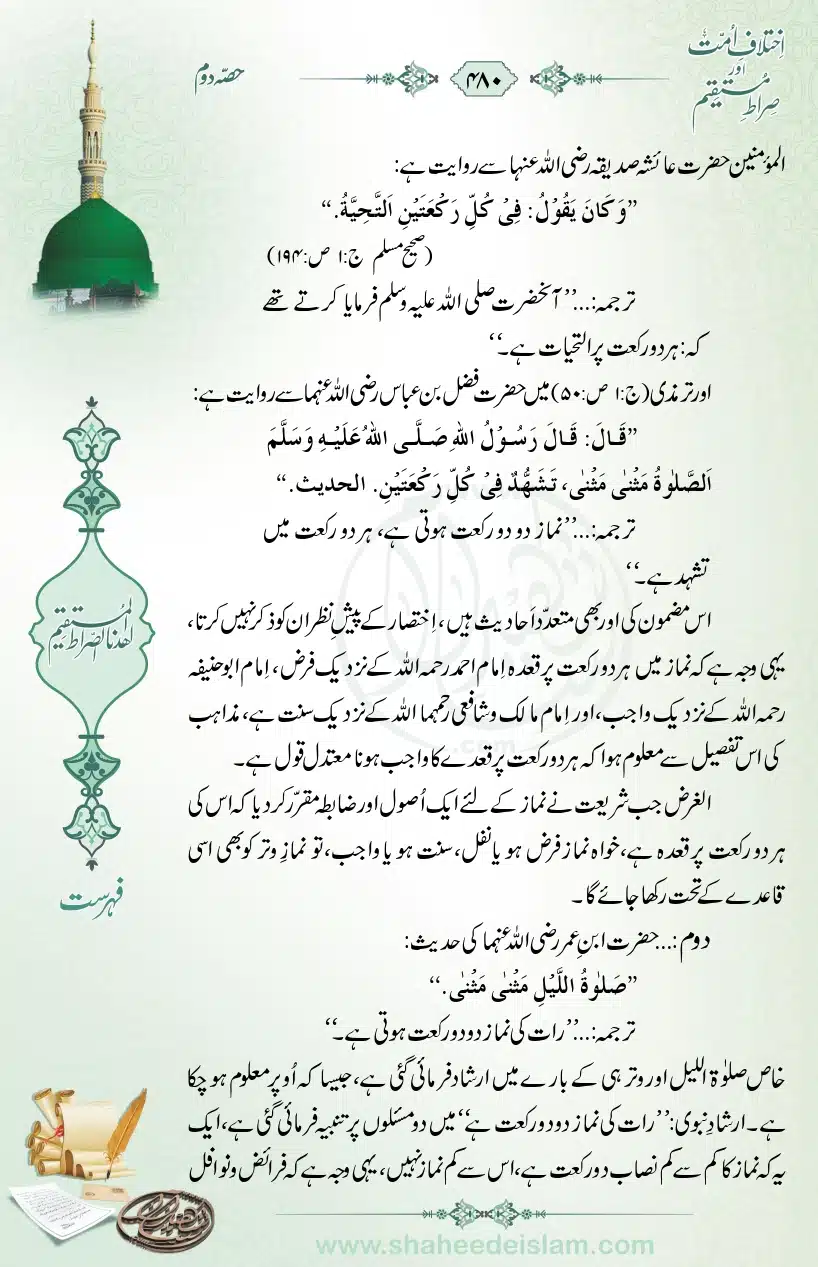 اِختلافِ اُمّت
اور
صِراطِ مُستقیم
۴۸۰
حصّہ دوم
المؤمنین حضرت عائشہ صدیقہ رضی اللہ عنہا سے روایت ہے:
”وَکَانَ یَقُوْلُ: فِیْ کُلِّ رَکْعَتَیْنِ اَلتَّحِیَّۃُ.“
(صحیح مسلم ج:۱ ص:۱۹۴)
ترجمہ:...’’آنحضرت صلی اللہ علیہ وسلم فرمایا کرتے تھے
کہ: ہر دو رکعت پر التحیات ہے۔‘‘
اور ترمذی (ج:۱ ص:۵۰) میں حضرت فضل بن عباس رضی اللہ عنہما سے روایت ہے:
”قَالَ: قَالَ رَسُوْلُ اللہِ صَلَّی اللہُ عَلَیْہِ وَسَلَّمَ
اَلصَّلٰوۃُ مَثْنٰی مَثْنٰی، تَشَھُّدٌ فِیْ کُلِّ رَکْعَتَیْنِ. الحدیث.“
ترجمہ:...’’نماز دو دو رکعت ہوتی ہے، ہر دو رکعت میں
تشہد ہے۔‘‘
اس مضمون کی اور بھی متعدّد اَحادیث ہیں، اِختصار کے پیشِ نظر ان کو ذکر نہیں کرتا،
یہی وجہ ہے کہ نماز میں ہر دو رکعت پر قعدہ اِمام احمد رحمہ اللہ کے نزدیک فرض، اِمام ابوحنیفہ
رحمہ اللہ کے نزدیک واجب، اور اِمام مالک و شافعی رحمہما اللہ کے نزدیک سنت ہے، مذاہب
کی اس تفصیل سے معلوم ہوا کہ ہر دو رکعت پر قعدے کا واجب ہونا معتدل قول ہے۔
الغرض جب شریعت نے نماز کے لئے ایک اُصول اور ضابطہ مقرّر کردیا کہ اس کی
ہر دو رکعت پر قعدہ ہے، خواہ نماز فرض ہو یا نفل، سنت ہو یا واجب، تو نمازِ وتر کو بھی اسی
قاعدے کے تحت رکھا جائے گا۔
دوم:...حضرت ابنِ عمر رضی اللہ عنہما کی حدیث:
”صَلٰوۃُ اللَّیْلِ مَثْنٰی مَثْنٰی.“
ترجمہ:...’’رات کی نماز دو دو رکعت ہوتی ہے۔‘‘
خاص صلوٰۃ اللیل اور وتر ہی کے بارے میں ارشاد فرمائی گئی ہے، جیسا کہ اُوپر معلوم ہوچکا
ہے۔ ارشادِ نبوی: ’’رات کی نماز دو دو رکعت ہے‘‘ میں دو مسئلوں پر تنبیہ فرمائی گئی ہے، ایک
یہ کہ نماز کا کم سے کم نصاب دو رکعت ہے، اس سے کم نماز نہیں، یہی وجہ ہے کہ فرائض و نوافل
اھدنا الصّراط المُستقیم
فہرست
www.shaheedeislam.com